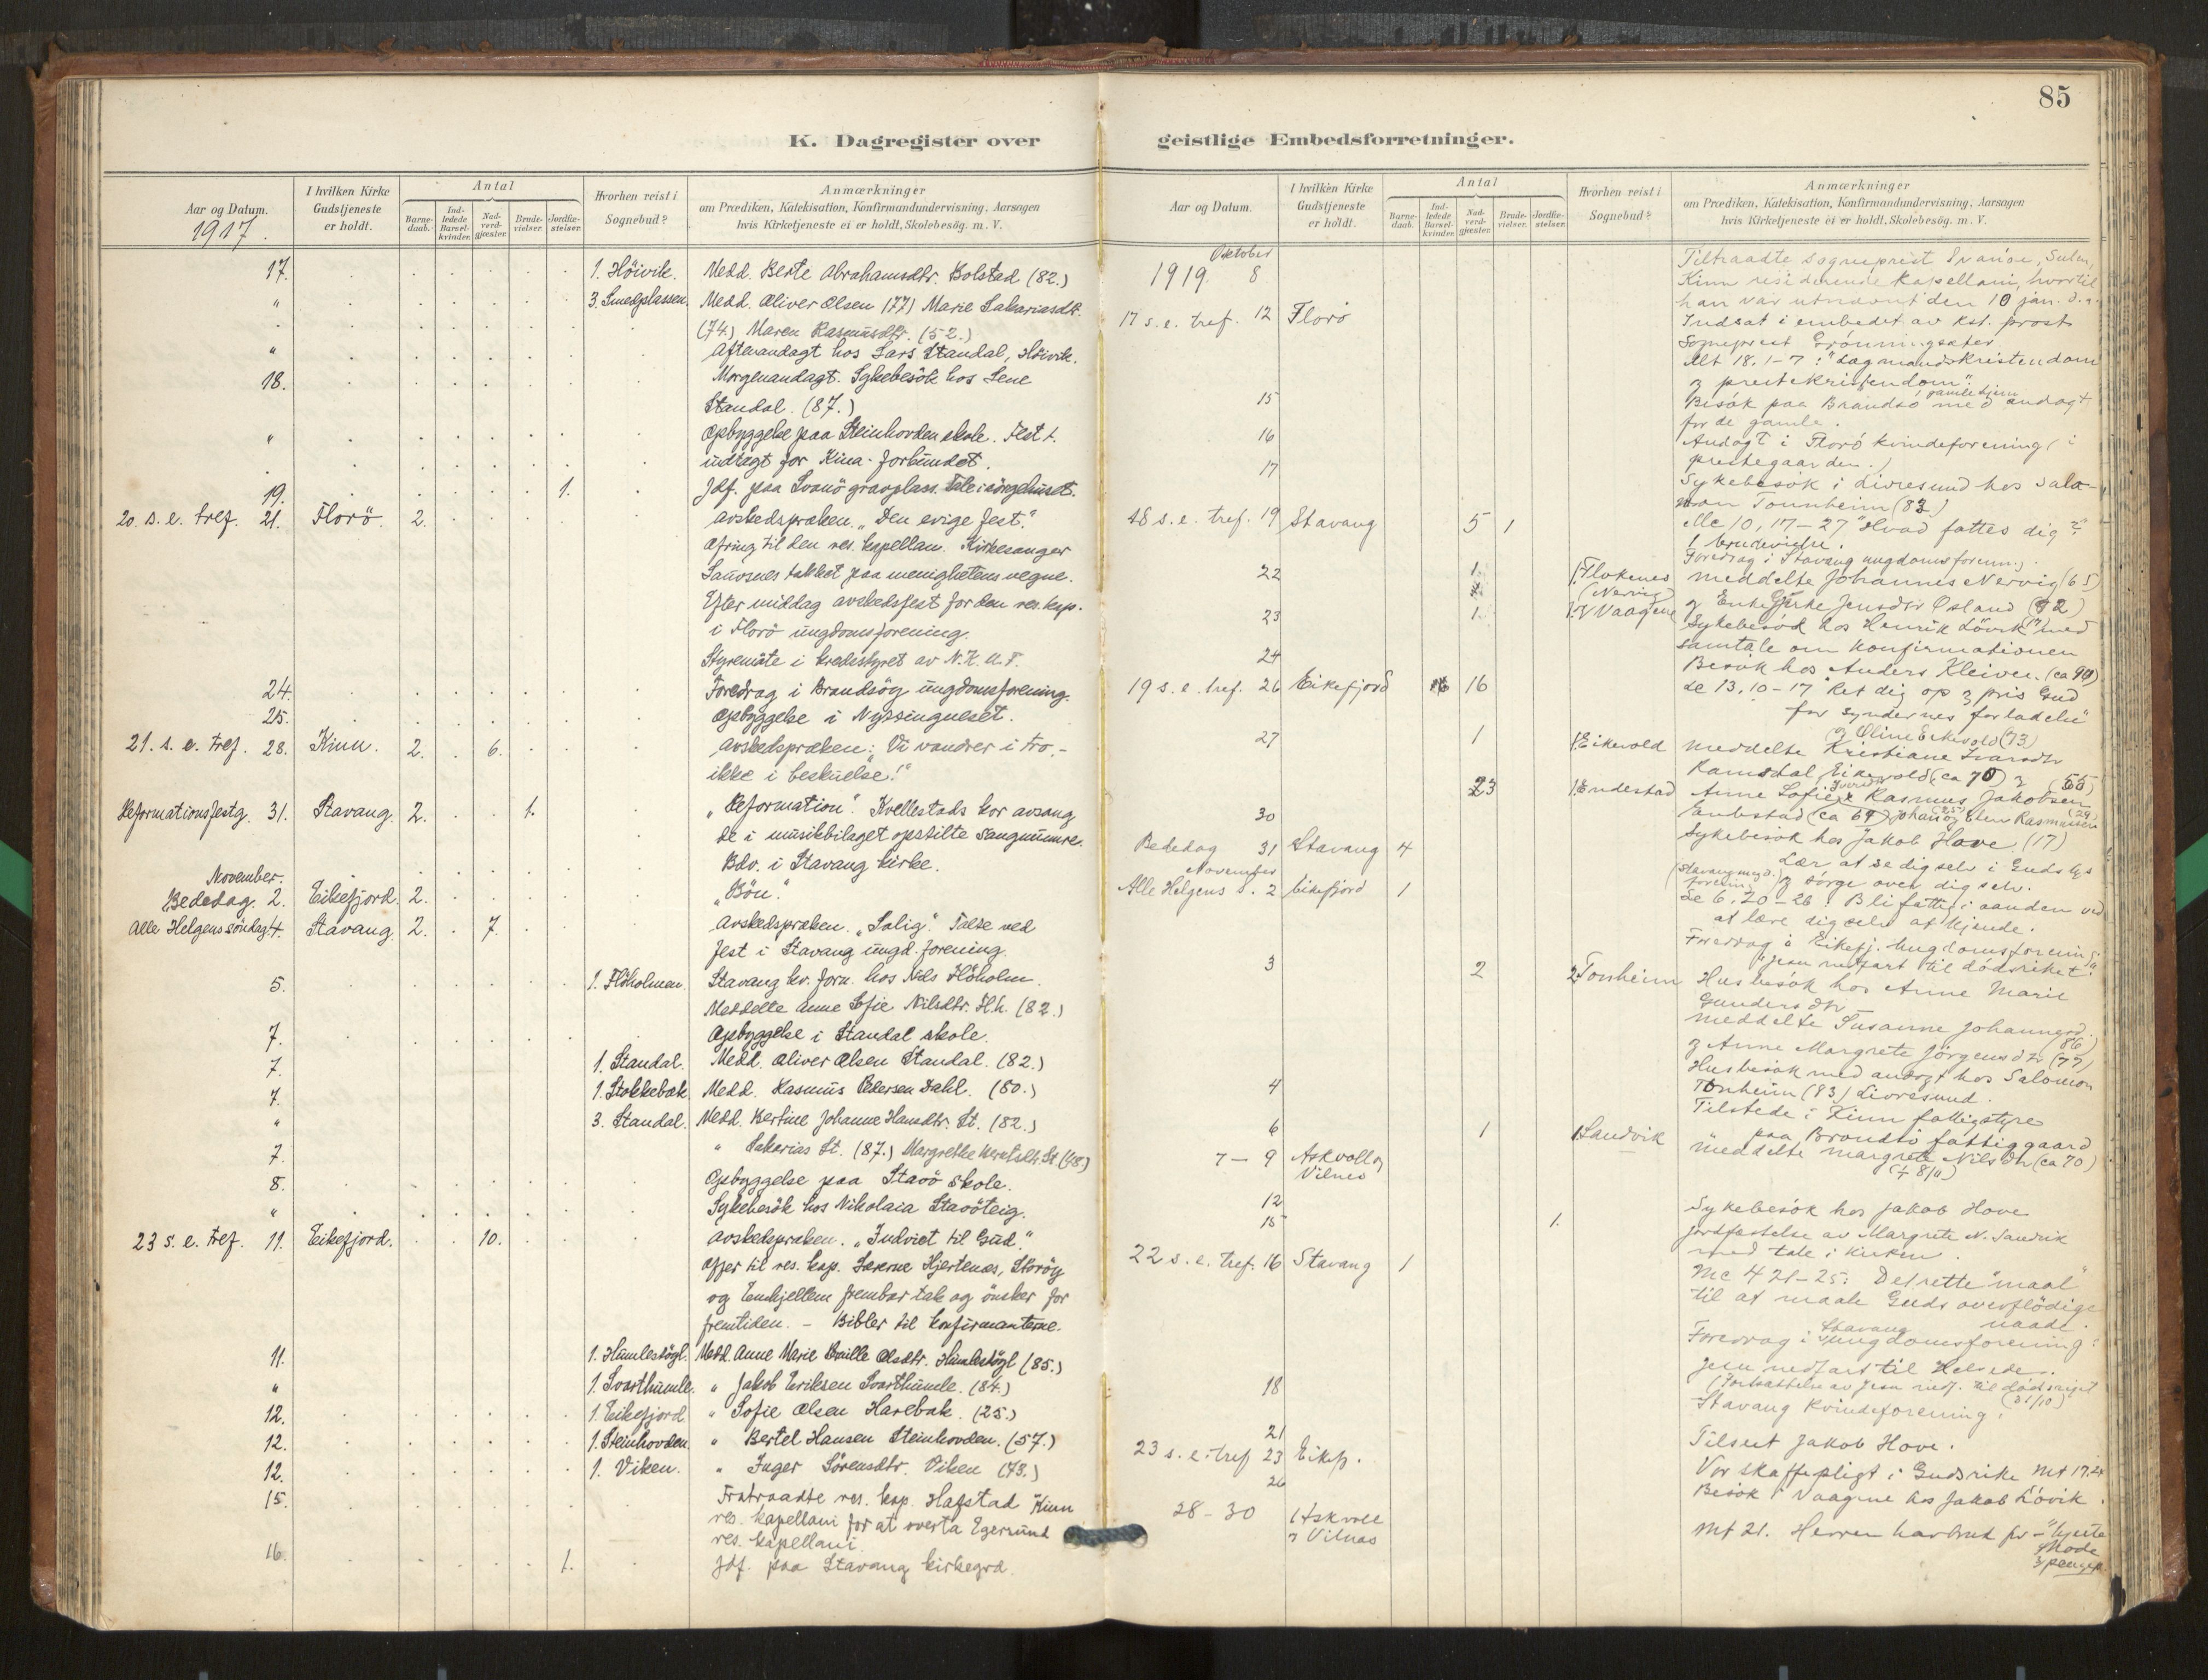 85
K. Dagregister over
Aar og Datum.
1917.
I hvilken Kirke Gudstjeneste er holdt.
Antal
Barne-daab.
Ind-ledede Barsel-kvinder.
Nad-verd-gjæster.
Brude-vielser.
Jordfæ-stelser.
Hvorhen reist i Sognebud?
Anmærkninger
om Prædiken, Katekisation, Konfirmandundervisning, Aarsagen
hvis Kirketjeneste ei er holdt, Skolebesög. m. V.
17. 1. Höivik. Medd. Berte Abrahamsdtr. Bolstad (82.)
" 3. Smedplassen. Medd. Oliver Olsen (77) Marie Sakariasdtr.
(74.) Maren Rasmusdtr. (52.)
" Aftenandagt hos Lars Standal, Höivik.
18. Morgenandagt. Sykebesök hos Lene
Standal. (87.)
" Opbyggelse paa Steinhovden skole. Fest t.
indtægt for Kina-forbundet.
19. 1. Jdf. paa Svanö gravplass. Tale i sörgehuset.
20. s. e. tref. 21. Florö. 2. Avskedspræken. „Den evige fest."
Ofring til den res. kapellan. Kirkesanger
takket paa menighetens vegne.
Efter middag avskedsfest for den res. kap.
i Florö ungdomsforening.
Styremöte i kredsstyret av N.K.U.F.
24. Foredrag i Brandsöy ungdomsforening.
25. Opbyggelse i
21. s. e. tref. 28. Kinn. 2. 6. Avskedspræken: „Vi vandrer i tro -
ikke i beskuelse!"
Reformationsfestg. 31. Stavang. 2. 1. „Reformation". Kvellestads kor avsang
de i musikbilaget opstilte sangnumre.
Bdv. i Stavang kirke.
November.
Bededag. 2. Eikefjord. 2. „Bön."
Alle Helgens söndag. 4. Stavang. 2. 7. Avskedspræken. „Salig." Talse ved
fest i Stavang ungd. forening.
5. 1. Flöholmen. Stavang kv. forn. hos Nils Flöholm.
Meddelte Anne Sofie Nilsdtr. Flh. (82.)
7. Opbyggelse i Standal skole.
7. 1. Standal. Medd. Oliver Olsen Standal. (82.)
7. 1. Stokkebæk. Medd. Rasmus Pedersen Dahl. (80.)
" 3. Standal. Medd. Bertine Johanne Hansdtr. St. (82.)
" Sakarias St. (87.) Margrethe St. (48.)
7. Opbyggelse paa Stavö skole.
8. Sykebesök hos Nikolaia Stavöteig.
"
23 s. e. tref. 11. Eikefjord. 10. Avskedspræken. „Indviet til Gud."
Offer til res. kap. Hjertenæs, Storöy
og frembar tak og önsker for
fremtiden. - Bibler til konfirmanterne.
11. 1. Humlestögl. Medd. Anne Marie Olsdtr. Humlestögl (85.)
" 1. Svarthumle. " Jakob Eriksen Svarthumle. (84.)
12. 1. Eikefjord " Sofie Olsen Harebak. (25.)
12. 1. Steinhovden. " Bertel Hansen Steinhovden. (57.)
12. 1. Viken. " Inger Sörensdtr. Viken (73.)
15. Fratraadte res. kap. Hafstad Kinn
res. kapellani for at overta Egersund
res. kapellani.
16. 1. Jdf. paa Stavang kirkegrd.
geistlige Embedsforretninger.
Aar og Datum.
I hvilken Kirke Gudstjeneste er holdt.
Antal
Barne-daab.
Ind-ledede Barsel-kvinder.
Nad-verd-gjæster.
Brude-vielser.
Jordfæ-stelser.
Hvorhen reist i Sognebud?
Anmærkninger
om Prædiken, Katekisation, Konfirmandundervisning, Aarsagen
hvis Kirketjeneste ei er holdt, Skolebesög. m. V.
Oktober
1919. 8 Tiltraadte sogneprest
Kinn residerende kapellani, hvortil
han var utnævnt den 10 jan. d. a.
Indsat i embedet av kst. prost
Sogneprest Grönningsæter.
17 s. e. tref. 12 Florö Mt 18, 1-7: "Lægmandskristendom
og prestekristendom".
15 Besök paa Brandsö i gamlehjem med andagt
for de gamle.
16 Andagt i Florö kvindeforening (i
prestegaarden.)
17 Sykebesök i Livresund hos Salo-
mon Tonnheim (83)
18 s. e. tref. 19 Stavang 5 1 Mc 10, 17-27 "Hvad fattes dig?"
1 brudevielse.
Foredrag i Stavang ungdomsforening.
22 1 1. Flokenes (Nervig) meddelte Johannes Nervig (65)
23 1 1. Vaagene og Enke Jensdtr Osland (72)
Sykebesök hos Henrik Lövik med
samtale om konfirmationen
24 Besök hos Anders Kleiven. (ca 90)
19 s. e. tref. 26 Eikefjord 16 Lc 13, 10-17 "Ret dig op og pris Gud
for syndernes forladelse"
27 1 1. Eikevold meddelte Kristiane Ivarsdtr og Oline Eikevold (73)
Ramsdal, Eikevold (ca 70) og (55)
23 1. Endestad Anne Sofie og Rasmus Jakobsen
Endestad (ca 69) Rasmussen
30 Sykebesök hos Jakob Hove (17)
Bededag 31 Stavang 4 Lær at se dig selv i Guds lys
(Stavang ungd. forening) og sörge over dig selv.
November
Alle Helgens s. 2 Eikefjord 1 Lc 6, 20-26: Bli fattig i aanden ved
at lære dig selv at kjende.
Foredrag i Eikefj. Ungdomsforening:
"Jesu nedfart til dödsriket."
3 2 2. Tonheim Husbesök hos Anne Marie
Gundersdtr
meddelte Susanne Johannesd. (86)
og Anne Margrete Jörgensdtr (77)
4 Husbesök med andagt hos Salomon
Tonheim (83) Livresund.
Tilstede i Kinn fattigstyre
6 1 1. Sandvik paa Brandsö fattiggaard
meddelte Margrete Nilsdtr (ca 70)
(+ 8/11)
7 - 9 Askvoll og
Vilnes
12 Sykebesök hos Jakob Hove
15 1. Jordfæstelse av Margrete N. Sandvik
med tale i kirken.
22 s. e. tref. 16 Stavang 1 Mc 4 21-25: Det rette "maal"
til at maale Guds overflödige
naade.
Foredrag i Stavang ungdomsforening:
Jesu nedfart til Helvede.
(Fortsættelse av Jesu nedf. til dödsriget (31/10))
18 Stavang Kvindeforening.
21 Tilseet Jakob Hove.
23 s. e. tref 23 Eikefj. Vor skattepligt i Gudsrike Mt 17, 24
26 Besök i Vaagene hos Jakob Lövik.
28 - 30 Askvoll
og Vilnæs
Mt 21. Herren har bruk for - hjerte
hode
og penger